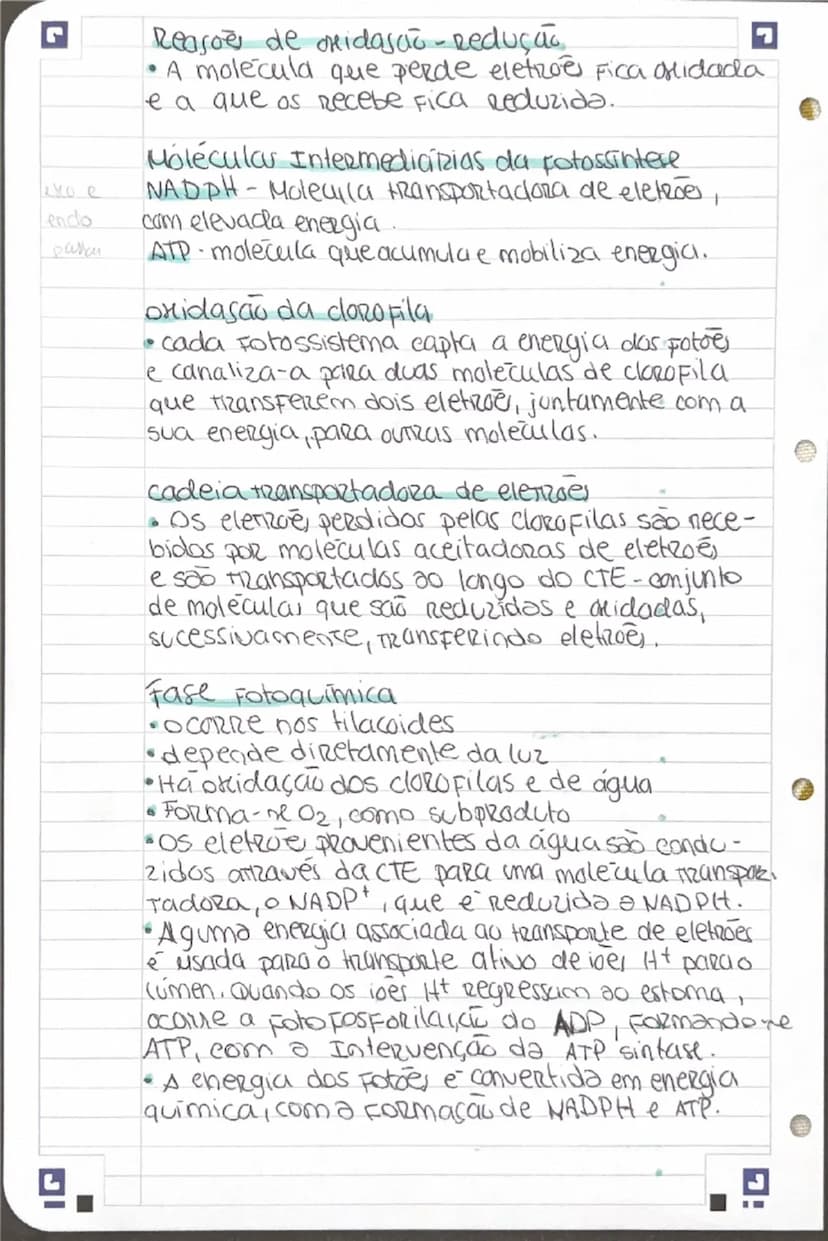 Reações de oxidação-redução
• A molécula que perde eletrões fica oxidada
e a que os recebe fica reduzida.
Moléculas Intermediárias da fotossíntese
NADPH - Molécula transportadora de eletrões,
com elevada energia.
ATP - molécula que acumula e mobiliza energia.
exo e
endo
oxidação da clorofila
• cada fotossistema capta a energia dos fotões
e canaliza-a para duas moléculas de clorofila
que transferem dois eletrões, juntamente com a
sua energia, para outras moléculas.
cadeia transportadora de eletrões
• Os eletrões perdidos pelas clorofilas são rece-
bidos por moléculas aceitadoras de eletrões
e são transportados ao longo do CTE - conjunto
de moléculas que são reduzidas e oxidadas,
sucessivamente, transferindo eletrões.
Fase fotoquímica
• ocorre nos tilacoides
• depende diretamente da luz
• Há oxidação dos clorofilas e de água
• Forma-se O2, como subproduto
• Os eletrões provenientes da água são condu-
zidos através da CTE para uma molécula transpor
tadora, o NADP+, que é reduzida a NADPH.
• Aguma energia associada ao transporte de eletrões
é usada para o transporte ativo de iões H+ para o
lúmen. Quando os iões H+ regressam ao estoma,
ocorre a fotofosforilação do ADP, formando-se
ATP, com a Intervenção da ATP sintase.
• A energia dos fotões é convertida em energia
química, com a formação de NADPH e ATP.